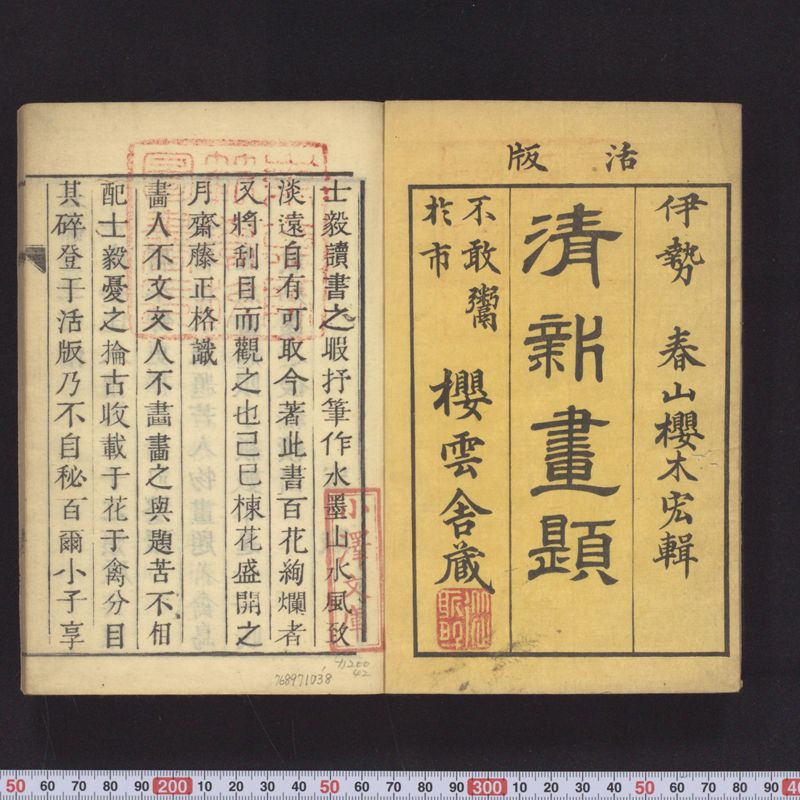 活版
伊勢 春山櫻木宏輯
清新畫題
不敢鬻
於市
櫻雲舎蔵
士毅讀書之暇抒筆作水墨山水風致
淡遠自有可取今著此書百花絢爛者
又將刮目而觀之也己巳楝花盛開之
月齋藤正格識
畵人不文文人不畵畵之與題苦不相
配士毅憂之掄古收載于花于禽分目
其碎登于活版乃不自秘百爾小子享
小澤文庫
768971038
カ1200
42
50 60 70 80 90 200 10 20 30 40 50 60 70 80 90 300 10 20 30 40 50 60 70 80 90